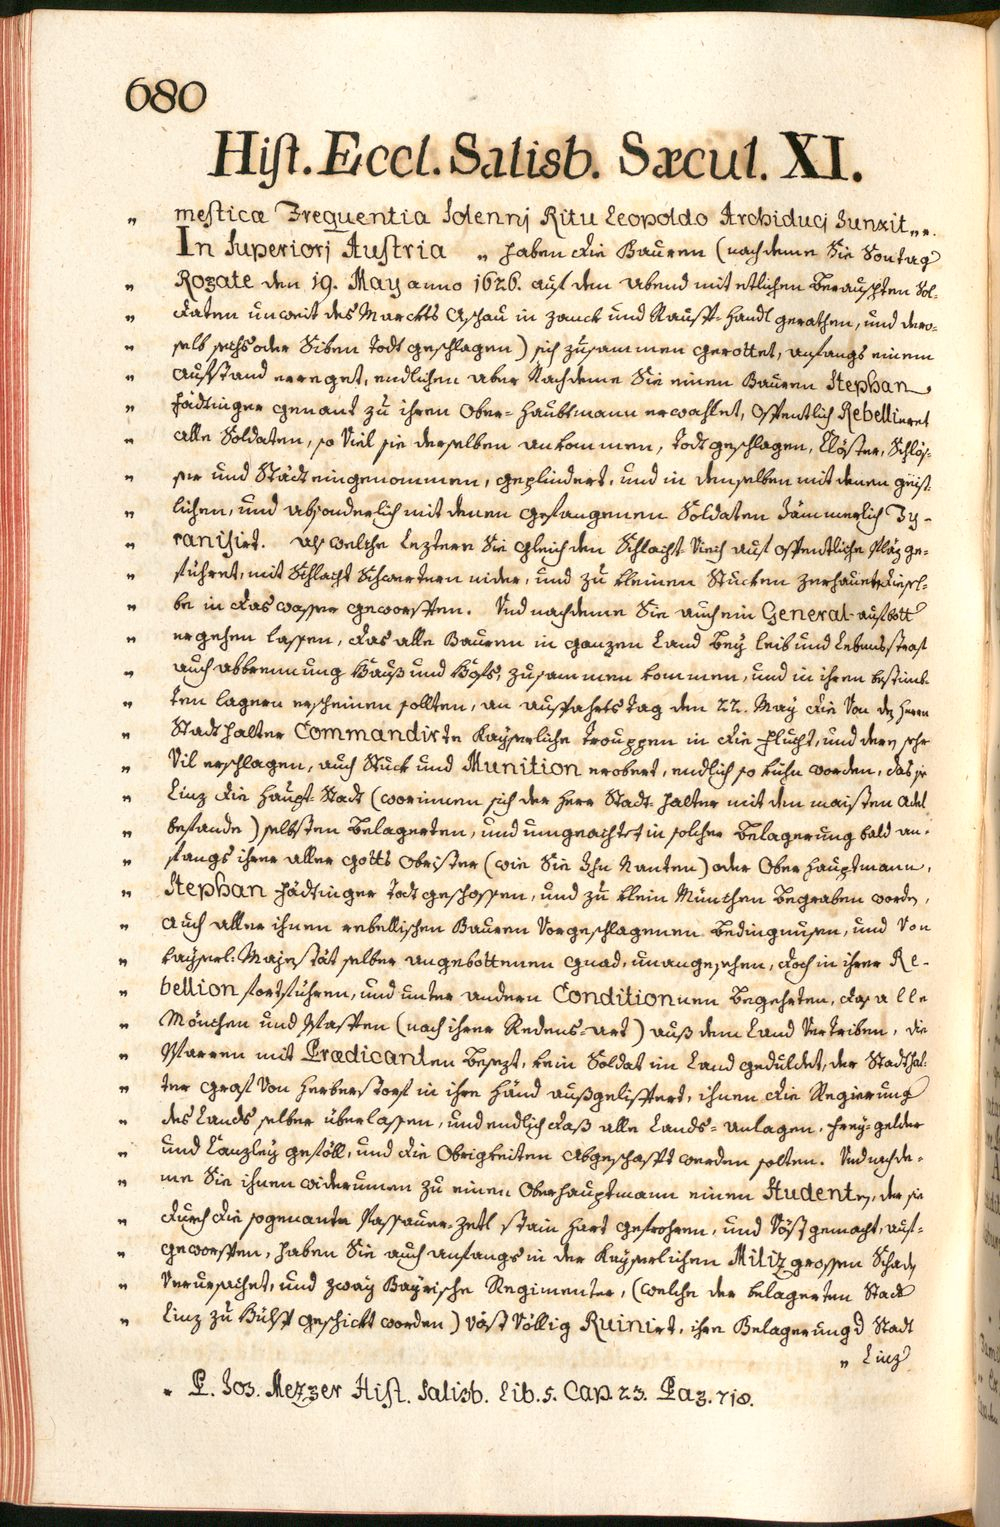 680
Hist. Eccl. Salisb. Sæcul. XI.
„ mesticæ Frequentia Solennj Ritu Leopoldo Archiducj Junxit „ „.
In Superiorj Austria „ haben die Bauren (nachdeme Sie Sontag
„ Rogate den 19. May anno 1626. auf den abend mit etlichen Berauschten Sol-
„ daten unweit des Marckts Aschau in Zanck und Rauff-handl gerathen, und dero-
„ selb sechs oder Siben Todt geschlagen) sich zusammen gerottet, anfangs einem
„ Aufstand erreget, endlichen aber Nachdeme Sie einen Bauren Stephan
„ Fädtinger genant zu ihren Ober-Haubtmann erwahlet, öffentlich Rebellieret
„ alle Soldaten, so Viel sie derselben ankommen, Todt geschlagen, Clöster, Schlös-
„ ser und Städt eingenommen, geplindert, und in denselben mit denen geist-
„ lichen, und absonderlich mit denen gefangenen Soldaten Jämmerlich Ty-
„ ranisirt. als welche leztere Sie gleich den Schlacht Viech auf offentliche Pläz ge-
„ führet, mit Schlacht Schwertern nider, und zu kleinen Stucken zerhauet, diesel-
„ be in das wasser geworffen. Und nachdeme Sie auch ein General-aufbott
„ ergehen lassen, das alle Bauren in ganzen Land Bey leib und Lebensstraf
„ auch abbrennung Hauß und Hofs, zusammen kommen, und in ihren bestimb-
„ ten lagern erscheinen sollten, an auffahrts tag den 22. May die Von des Herrn
„ Stadthalter Commandirte Kayserliche Trouppen in die flucht, und deren sehr
„ Vil erschlagen, auch Stuck und Munition erobert, endlich so kühn worden, das sie
„ Linz die Haupt-Stadt (worinnen sich der Herr Stadt-halter mit den maisten Adel
„ befande) selbsten Belagerten, und ungeachtet in solcher Belagerung bald an-
„ fangs ihrer aller gotts obrister (wie Sie Ihn Nanten) oder Ober hauptmann,
„ Stephan Fädtinger Todt geschossen, und zu klein München Begraben worden,
„ Auch aller ihnen rebellischen Bauren Vorgeschlagenen Bedingnusen, und Von
„ Kayserl: Majestät selber angebottenen gnad, unangesehen, doch in ihrer Re-
„ bellion fortführen, und unter andern Conditionnen Begehrten, das alle
„ Mönchen und Pfaffen (nach ihrer Redens-art) auß dem Land Vertriben, die
„ Pfarren mit Prædicanten Besezt, kein Soldat im Land geduldet, der Stadthal-
„ ter graf Von Herberstorf in ihre Händ außgelifert, ihnen die Regierung
„ des Lands selber überlassen, und endlich daß alle Lands-anlagen, freÿ-gelder
„ und Canzley gefäll, und die Obrigkeiten abgeschafft werden solten. Und nachde-
„ me Sie ihnen widerumen zu einen Oberhauptmann einen Studenten, der sie
„ durch die sogenante Passauer-zetl stain hart gefrohren, und Vöst gemacht, auf-
„ geworffen, haben Sie auch anfangs in der Kayserlichen Militz grossen Schaden
„ Verursachet, und zwaÿ Bayrische Regimenter, (welche der belagerten Stadt
„ Linz zu Hülff geschickt worden) Vöst Völlig Ruinirt, ihre Belagerung d Stadt
„ Linz
„ P. Jos. Mezger Hist. Salisb. Lib. 5. Cap. 23. Pag. 718.